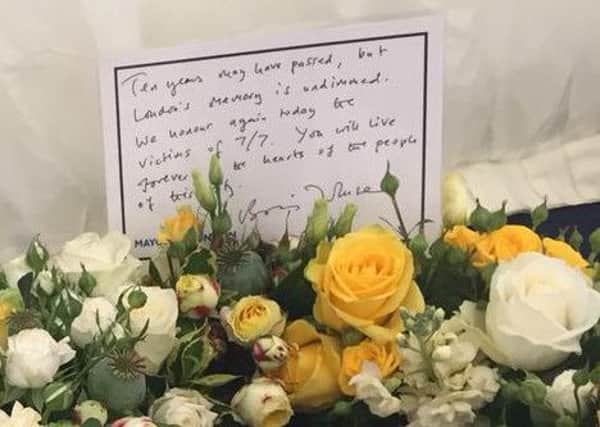 Ten years may have passed, but
London's memory is undimmed.
We honour again today the
victims of 7/7. You will live
forever in the hearts of the people
of this city.
Boris Johnson
MAYOR OF LONDON